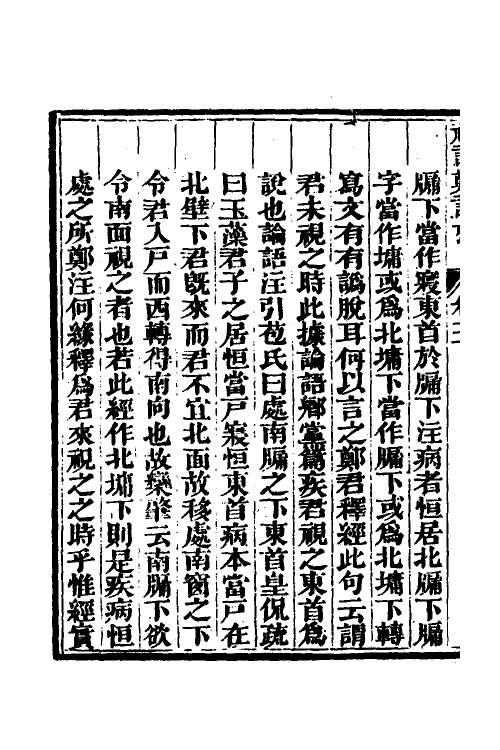 牖下當作寢東首於牖下注病者恒居北牖下牖
字當作墉或爲北墉下當作牖下或爲北墉下轉
寫文有有譌脫耳何以言之鄭君釋經此句云謂
君未視之時此據論語鄉黨篇疾君視之東首爲
說也論語注引苞氏曰處南牖之下東首皇侃疏
曰玉藻君子之居恒當戸寢恒東首病本當戸在
北壁下君旣來而君不宜北面故移處南窗之下
令君入戸而西轉得南向也故欒肇云南牖下欲
令南面視之者也若此經作北墉下則是疾病恒
處之所鄭注何緣釋爲君來視之之時乎惟經實